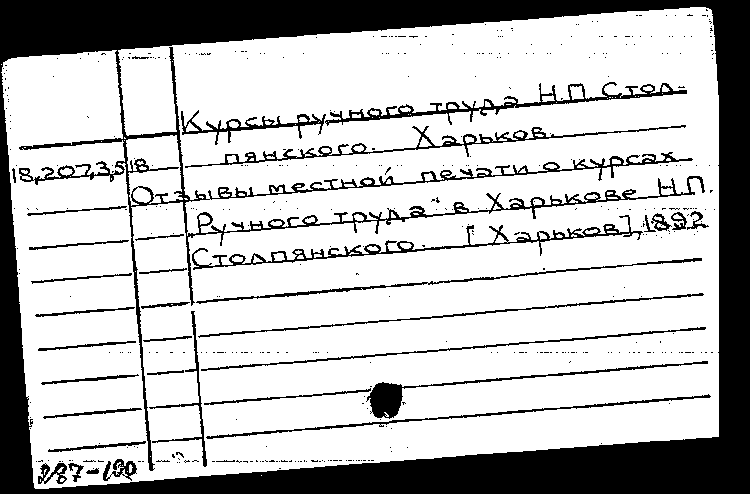 Курсы ручного труда Н.П. Стол-
пянского. Харьков.
18,207,3,518
Отзывы местной печати о курсах
Ручного труда" в Харькове Н.П.
Столпянского. [Харьков], 1892